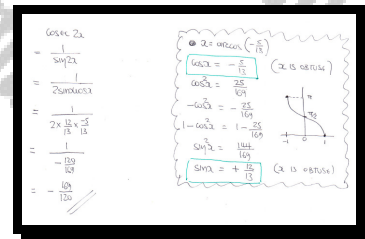 cosec 2x
= 1/sin2x
= 1/2sinxcosx
= 1/(2 × 12/13 × -5/13)
= 1/(-120/169)
= - 169/120
• x = arccos(-5/13)
cosx = - 5/13 (x is obtuse)
cos²x = 25/169
-cos²x = - 25/169
1 - cos²x = 1 - 25/169
sin²x = 144/169
sinx = + 12/13 (x is obtuse)
π
π/2
-1 0 1